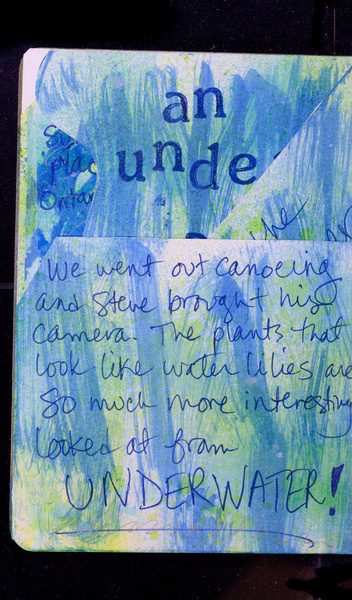 an
unde
plac
Ontar
the
We went out canoeing
and Steve brought his
camera. The plants that
look like water lilies are
so much more interesting
looked at from
UNDERWATER!